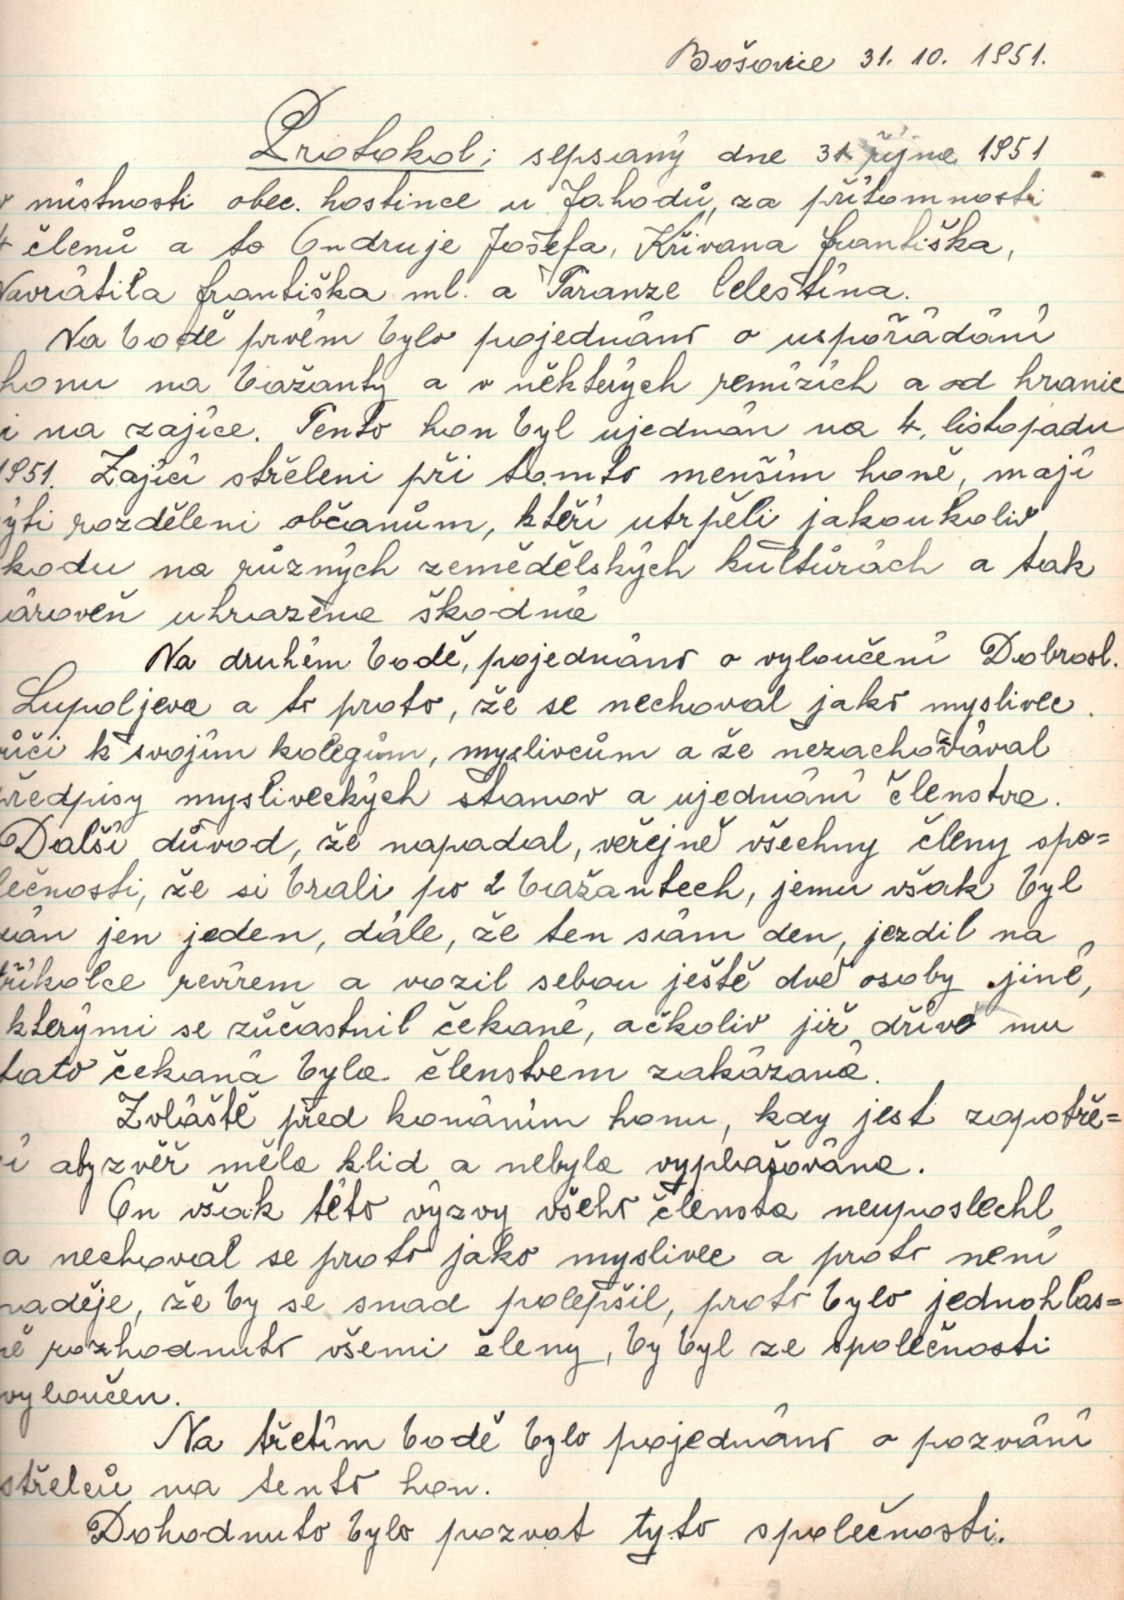 Bošovice 31. 10. 1951.
Protokol; sepsaný dne 31 října 1951
v místnosti obec. hostince u Jahodů, za přítomnosti
4 členů a to Ondruje Josefa, Křivana Františka,
Navrátila Františka ml. a Taranze Celestina.
Na bodě prvém bylo pojednáno o uspořádání
honu na bažanty a v některých remízích a od hranic
i na zajíce. Tento hon byl ujednán na 4. listopadu
1951. Zajíci střeleni při tomto menším honě, mají
ýti rozděleni občanům, kteří utrpěli jakoukoliv
kodu na různých zemědělských kulturách a tak
ároveň uhrazena škodná
Na druhém bodě, pojednáno o vyloučení Dobrosl.
Lupoljeva a to proto, že se nechoval jako myslivec
ůči k svojím kolegům, myslivcům a že nezachovával
ředpisy mysliveckých stanov a ujednání členstva.
Další důvod, že napadal, veřejně všechny členy spo=
lečnosti, že si brali po 2 bažantech, jemu však byl
dán jen jeden, dále, že ten sám den, jezdil na
tříkolce revírem a vozil sebou ještě dvě osoby jiné,
kterými se zůčastnil čekané, ačkoliv již dříve mu
tato čekaná byla členstvem zakázaná.
Zvláště před konáním honu, kdy jest zapotře=
í aby zvěř měla klid a nebyla vyplašována.
On však této výzvy všeho člensta neuposlechl
a nechoval se proto jako myslivec a proto není
naděje, že by se snad polepšil, proto bylo jednohlas=
ně rozhodnuto všemi členy, by byl ze společnosti
vyloučen.
Na třetím bodě bylo pojednáno o pozvání
střelců na tento hon.
Dohodnuto bylo pozvat tyto společnosti.